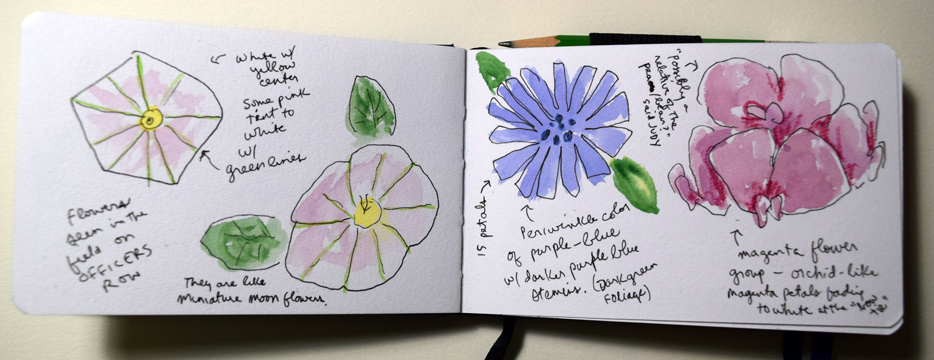 White w/
yellow
center
Some pink
tent to
white
w/
green lines
Flowers
seen in the
field on
OFFICERS
ROW
They are like
miniature moon flowers.
15 petals
Periwinkle color
of purple-blue
w/ darker purple blue
stemens. (Dark green
foliage)
"possibly a
relative of the
pea
said JUDY
magenta flower
group - orchid-like
magenta petals fading
to white at the